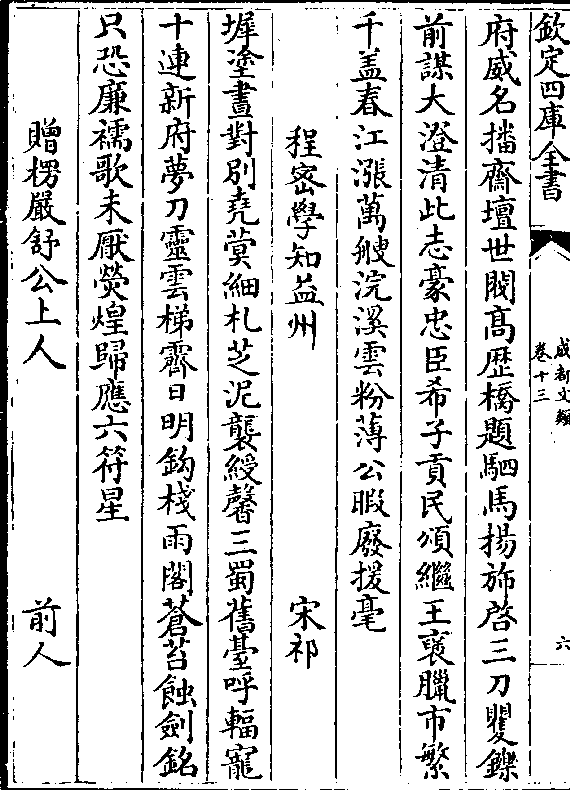 欽定四庫全書
成都文類
卷十三
六
府威名播齋壇世閥髙歴橋題駟馬揚斾啓三刀矍鑠
前謀大澄清此志豪忠臣希子貢民頌繼王襃臘市繁
千盖春江漲萬艘浣溪雲粉薄公暇廢援毫
程密學知益州 宋祁
墀塗畫對別堯蓂細札芝泥襲綬馨三蜀舊臺呼輻寵
十連新府夢刀靈雲梯霽日明鈎棧雨閣蒼苔蝕劍銘
只恐廉襦歌未厭熒煌歸應六符星
贈楞嚴舒公上人 前人